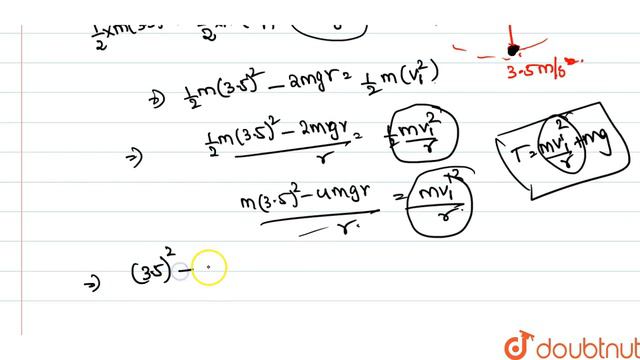 ½m(3.5)² - 2mgr = ½m(v₁²)
3.5m/s
⇒ ½m(3.5)² - 2mgr / r = ½ mv₁² / r
T = mv₁² / r + mg
m(3.5)² - 4mgr / r = mv₁² / r
⇒ (3.5)² -
doubtnut